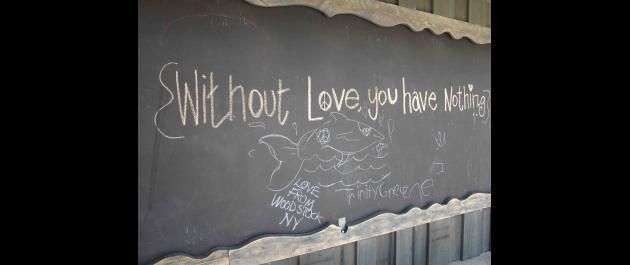 Without Love, you have Nothing
LOVE
FROM
WOODSTOCK
NY